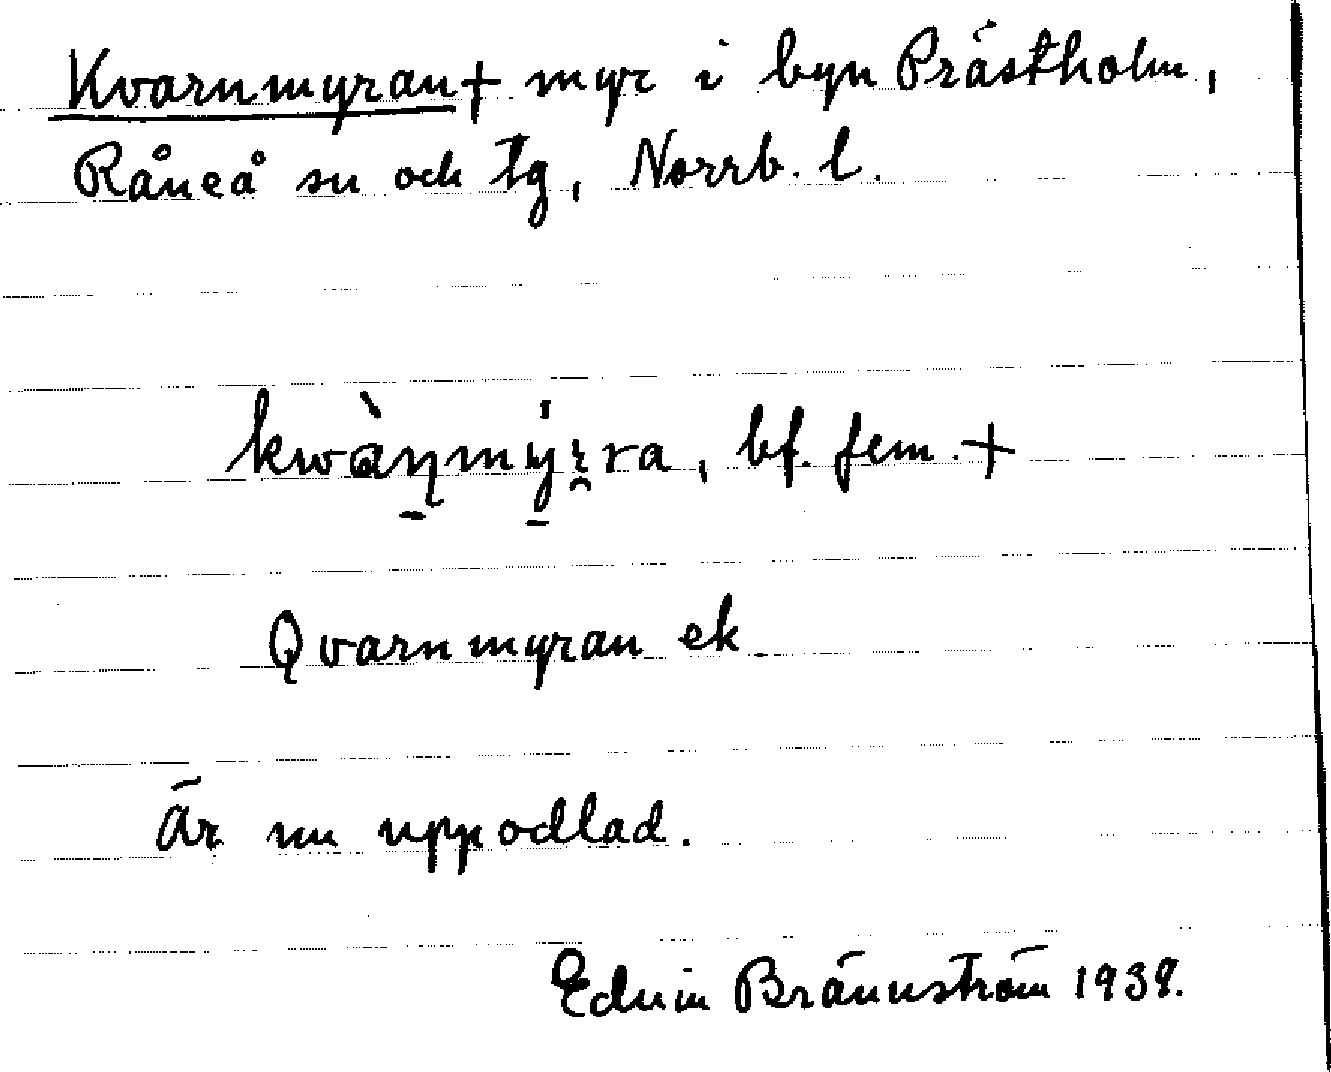 Kvarnmyran + myr i byn Prästholm,
Råneå sn och tg, Norrb. l.
kwàṇmýrra, bf. fem. +
Qvarnmyran ek
Är nu uppodlad.
Edvin Brännström 1939.